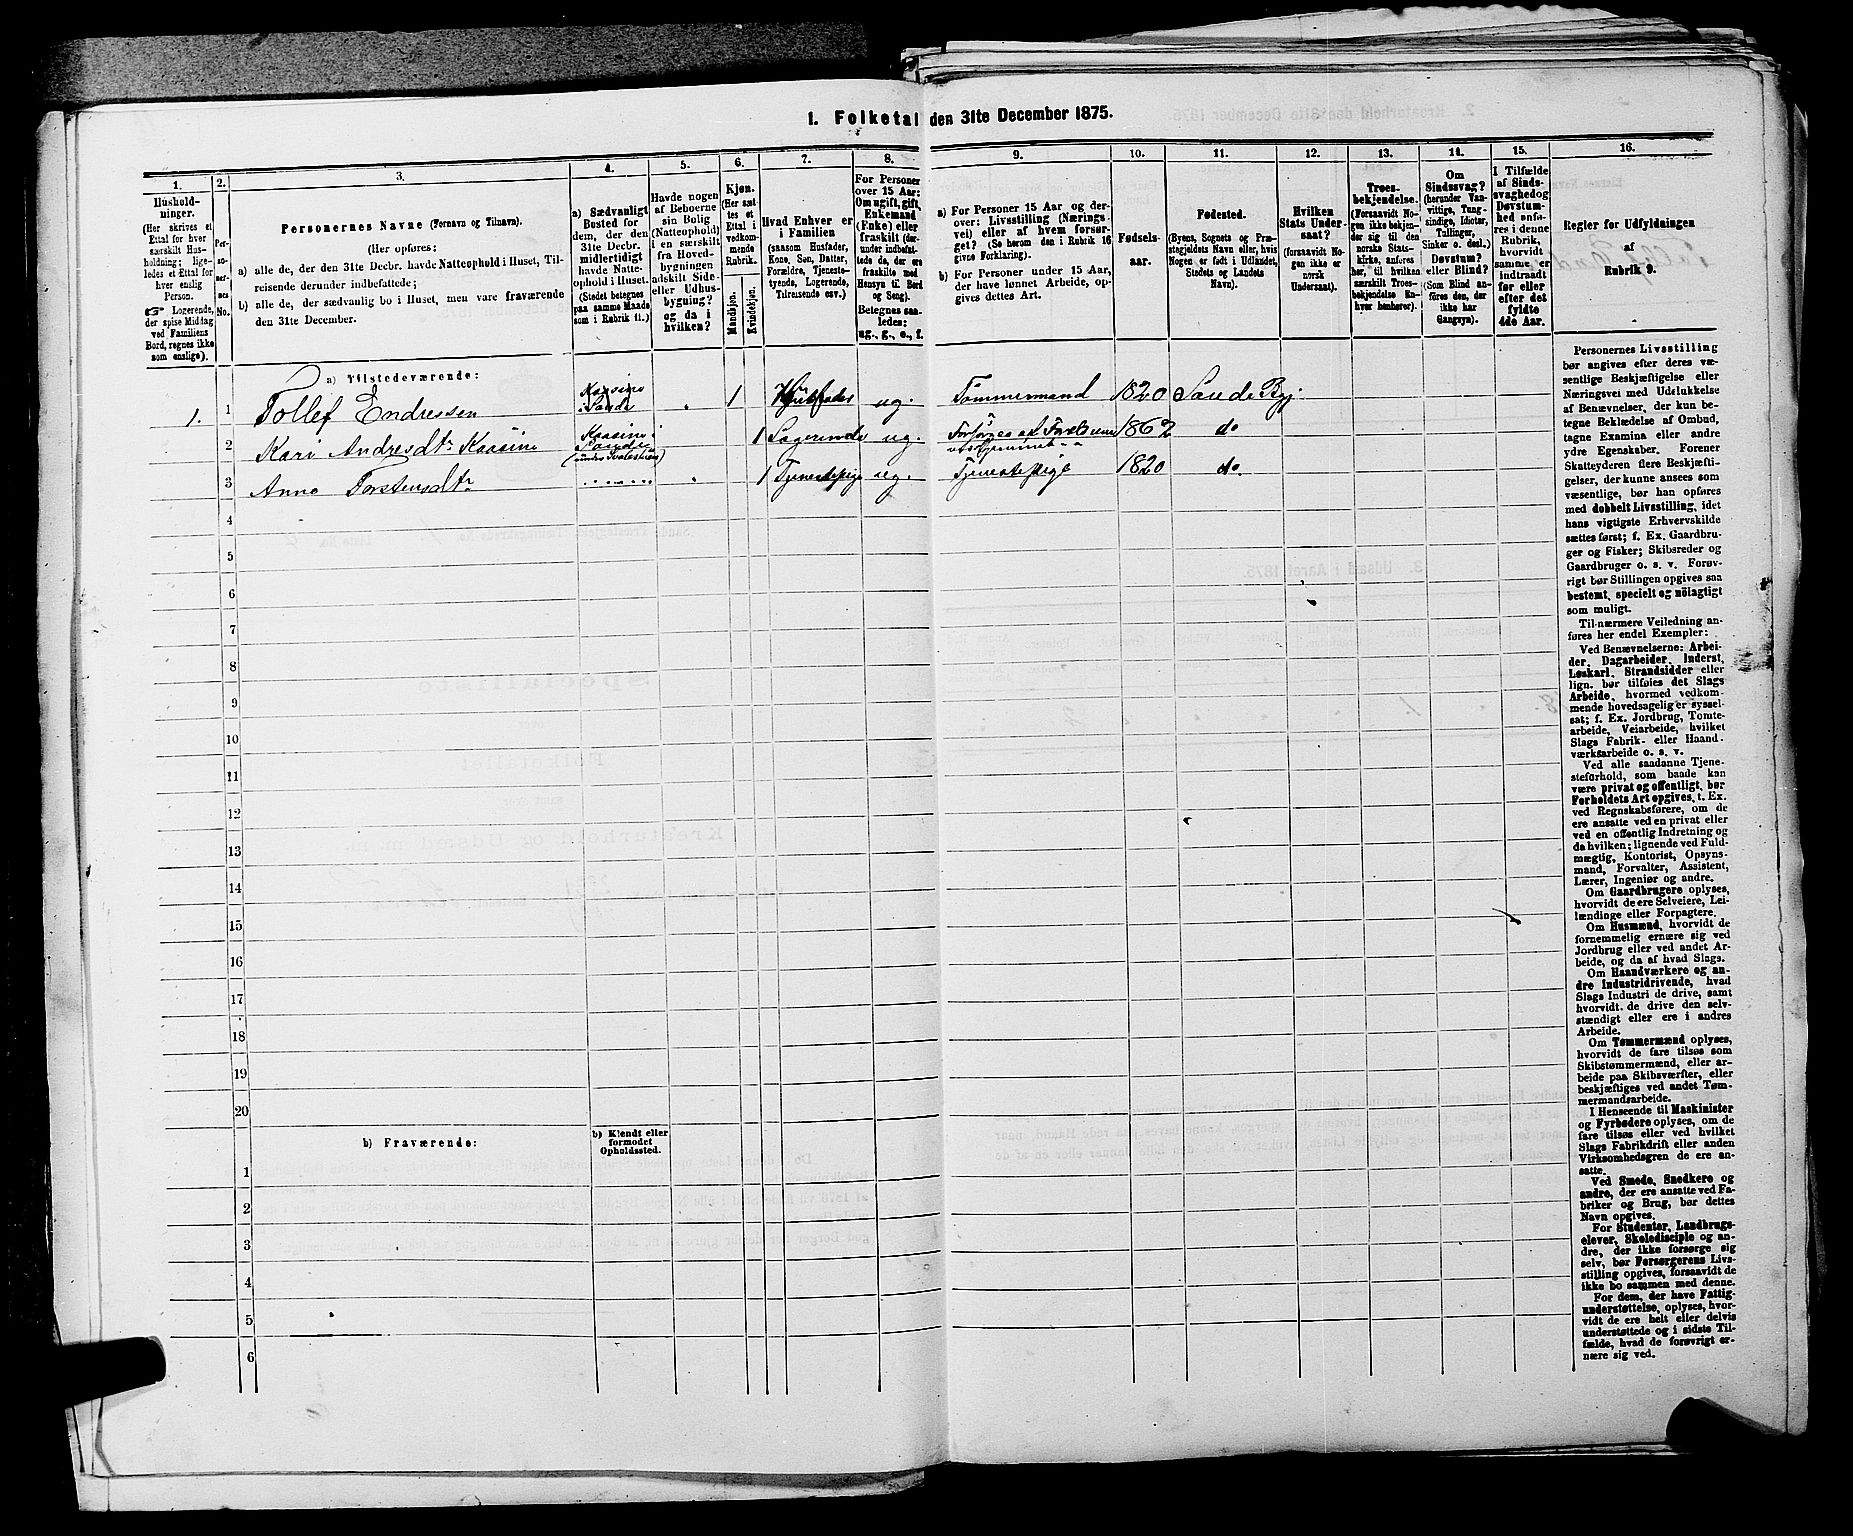 1. Folketal den 31te December 1875.
1.
Husholdninger.
(Her skrives et
Ettal for hver
særskilt Husholdning;
ligeledes
et Ettal for
hver enslig
Person.
☞ Logerende,
der spise Middag
ved Familiens
Bord, regnes ikke
som enslige).
2.
Personernes
No.
3.
Personernes Navne (Fornavn og Tilnavn).
(Her opføres:
a) alle de, der den 31te Decbr. havde Natteophold i Huset, Tilreisende
derunder indbefattede;
b) alle de, der sædvanlig bo i Huset, men vare fraværende
den 31te December.
4.
a) Sædvanligt
Bosted for
dem, der den
31te Decbr.
midlertidigt
havde Natteophold
i Huset.
(Stedet betegnes
paa samme Maade
som i Rubrik 11.)
5.
Havde nogen
af Beboerne
sin Bolig
(Natteophold)
i en særskilt
fra Hovedbygningen
adskilt Side-
eller Udhusbygning?
og da i
hvilken?
6.
Kjøn.
(Her sættes
et
Ettal i
vedkommende
Rubrik.
Mandkjøn.
Kvindekjøn.
7.
Hvad Enhver er
i Familien
(saasom Husfader,
Kone, Søn, Datter,
Forældre, Tjenestetyende,
Logerende,
Tilreisende osv.)
8.
For Personer
over 15 Aar:
Om ugift, gift,
Enkemand
(Enke) eller
fraskilt (derunder
indbefattede
de, der ere
fraskilte med
Hensyn til Bord
og Seng).
Betegnes saaledes:
ug., g., e., f.
9.
a) For Personer 15 Aar og derover:
Livsstilling (Næringsvei)
eller af hvem forsørget?
(Se herom den i Rubrik 16
givne Forklaring).
b) For Personer under 15 Aar,
der have lønnet Arbeide, opgives
dettes Art.
10.
Fødselsaar.
11.
Fødested.
(Byens, Sognets og Præstegjeldets
Navn eller, hvis
Nogen er født i Udlandet,
Stedets og Landets
Navn).
12.
Hvilken
Stats Undersaat?
(forsaavidt Nogen
ikke er
norsk
Undersaat).
13.
Troesbekjendelse.
(Forsaavidt Nogen
ikke bekjender
sig til den
norske Statskirke,
anføres
her, til hvilken
særskilt Troesbekjendelse
Enhver
henhører).
14.
Om
Sindssvag?
(herunder Vanvittige,
Tungsindige,
Idioter,
Tullinger,
Sinker o. desl.)
Døvstum?
eller Blind?
(Som Blind anføres
den, der
ikke har
Gangsyn).
15.
I Tilfælde
af Sindssvaghed
og
Døvstumhed
anføres
i denne
Rubrik,
hvorvidt
samme er
indtraadt
før eller
efter det
fyldte
4de Aar.
16.
Regler for Udfyldningen
af
Rubrik 9.
a) Tilstedeværende:
1. 1 Tollef Endressen Kaasine i Sande „ 1 Husfader ug. Tømmermand 1820 Sande By.
2 Kari Andresdtr Kaasine Kaasine i Sande 1 Logerende ug. Forsørges af Forældrene 1862 do
3 Anne Torstensdtr „ 1 Tjenestepige ug. Tjenestepige 1820 do.
4
5
6
7
8
9
10
11
12
13
14
15
16
17
18
19
20
b) Fraværende:
b) Kjendt eller
formodet
Opholdssted.
1
2
3
4
5
6
Personernes Livsstilling
bør angives efter deres væsentlige
Beskjæftigelse eller
Næringsvei med Udelukkelse
af Benævnelser, der kun betegne
Beklædelse af Ombud,
tagne Examina eller andre
ydre Egenskaber. Forener
Skatteyderen flere Beskjæftigelser,
der kunne ansees som
væsentlige, bør han opføres
med dobbelt Livsstilling, idet
hans vigtigste Erhvervskilde
sættes først; f. Ex. Gaardbruger
og Fisker; Skibsreder og
Gaardbruger o. s. v. Forøvrigt
bør Stillingen opgives saa
bestemt, specielt og nøiagtigt
som muligt.
Til nærmere Veiledning anføres
her endel Exempler:
Ved Benævnelserne: Arbeider,
Dagarbeider, Inderst,
Løskarl, Strandsidder eller
lign. bør tilføies det Slags
Arbeide, hvormed vedkommende
hovedsagelig er sysselsat;
f. Ex. Jordbrug, Tomtearbeide,
Veiarbeide, hvilket
Slags Fabrik- eller Haandværksarbeide
o. s. v.
Ved alle saadanne Tjenesteforhold,
som baade kan
være privat og offentligt, bør
Forholdets Art opgives, t. Ex.
ved Regnskabsførere, om de
ere ansatte ved en privat eller
ved en offentlig Indretning og
da hvilken; lignende ved Fuldmægtig,
Kontorist, Opsynsmand,
Forvalter, Assistent,
Lærer, Ingeniør og andre.
Om Gaardbrugere oplyses,
hvorvidt de ere Selveiere, Leilændinge
eller Forpagtere.
Om Husmænd, hvorvidt de
fornemmelig ernære sig ved
Jordbrug eller ved andet Arbeide,
og da af hvad Slags.
Om Haandværkere og andre
industridrivende, hvad
Slags Industri de drive, samt
hvorvidt de drive den selvstændigt
eller ere i andres
Arbeide.
Om Tømmermænd oplyses,
hvorvidt de fare tilsøs som
Skibstømmermænd, eller arbeide
paa Skibsværfter, eller
beskjæftiges ved andet Tømmermandsarbeide.
I Henseende til Maskinister
og Fyrbødere oplyses, om de
fare tilsøs eller ved hvilket
Slags Fabrikdrift eller anden
Virksomhedsgren de ere ansatte.
Ved Smede, Snedkere og
andre, der ere ansatte ved Fabriker
og Brug, bør dettes
Navn opgives.
For Studenter, Landbrugselever,
Skoledisciple og andre,
der ikke forsørge sig
selv, bør Forsørgerens Livsstilling
opgives, forsaavidt de
ikke bo sammen med denne.
For dem, der have Fattigunderstøttelse,
oplyses, hvorvidt
de ere helt eller delvis
understøttede og i sidste Tilfælde,
hvad de forøvrigt ernære
sig ved.